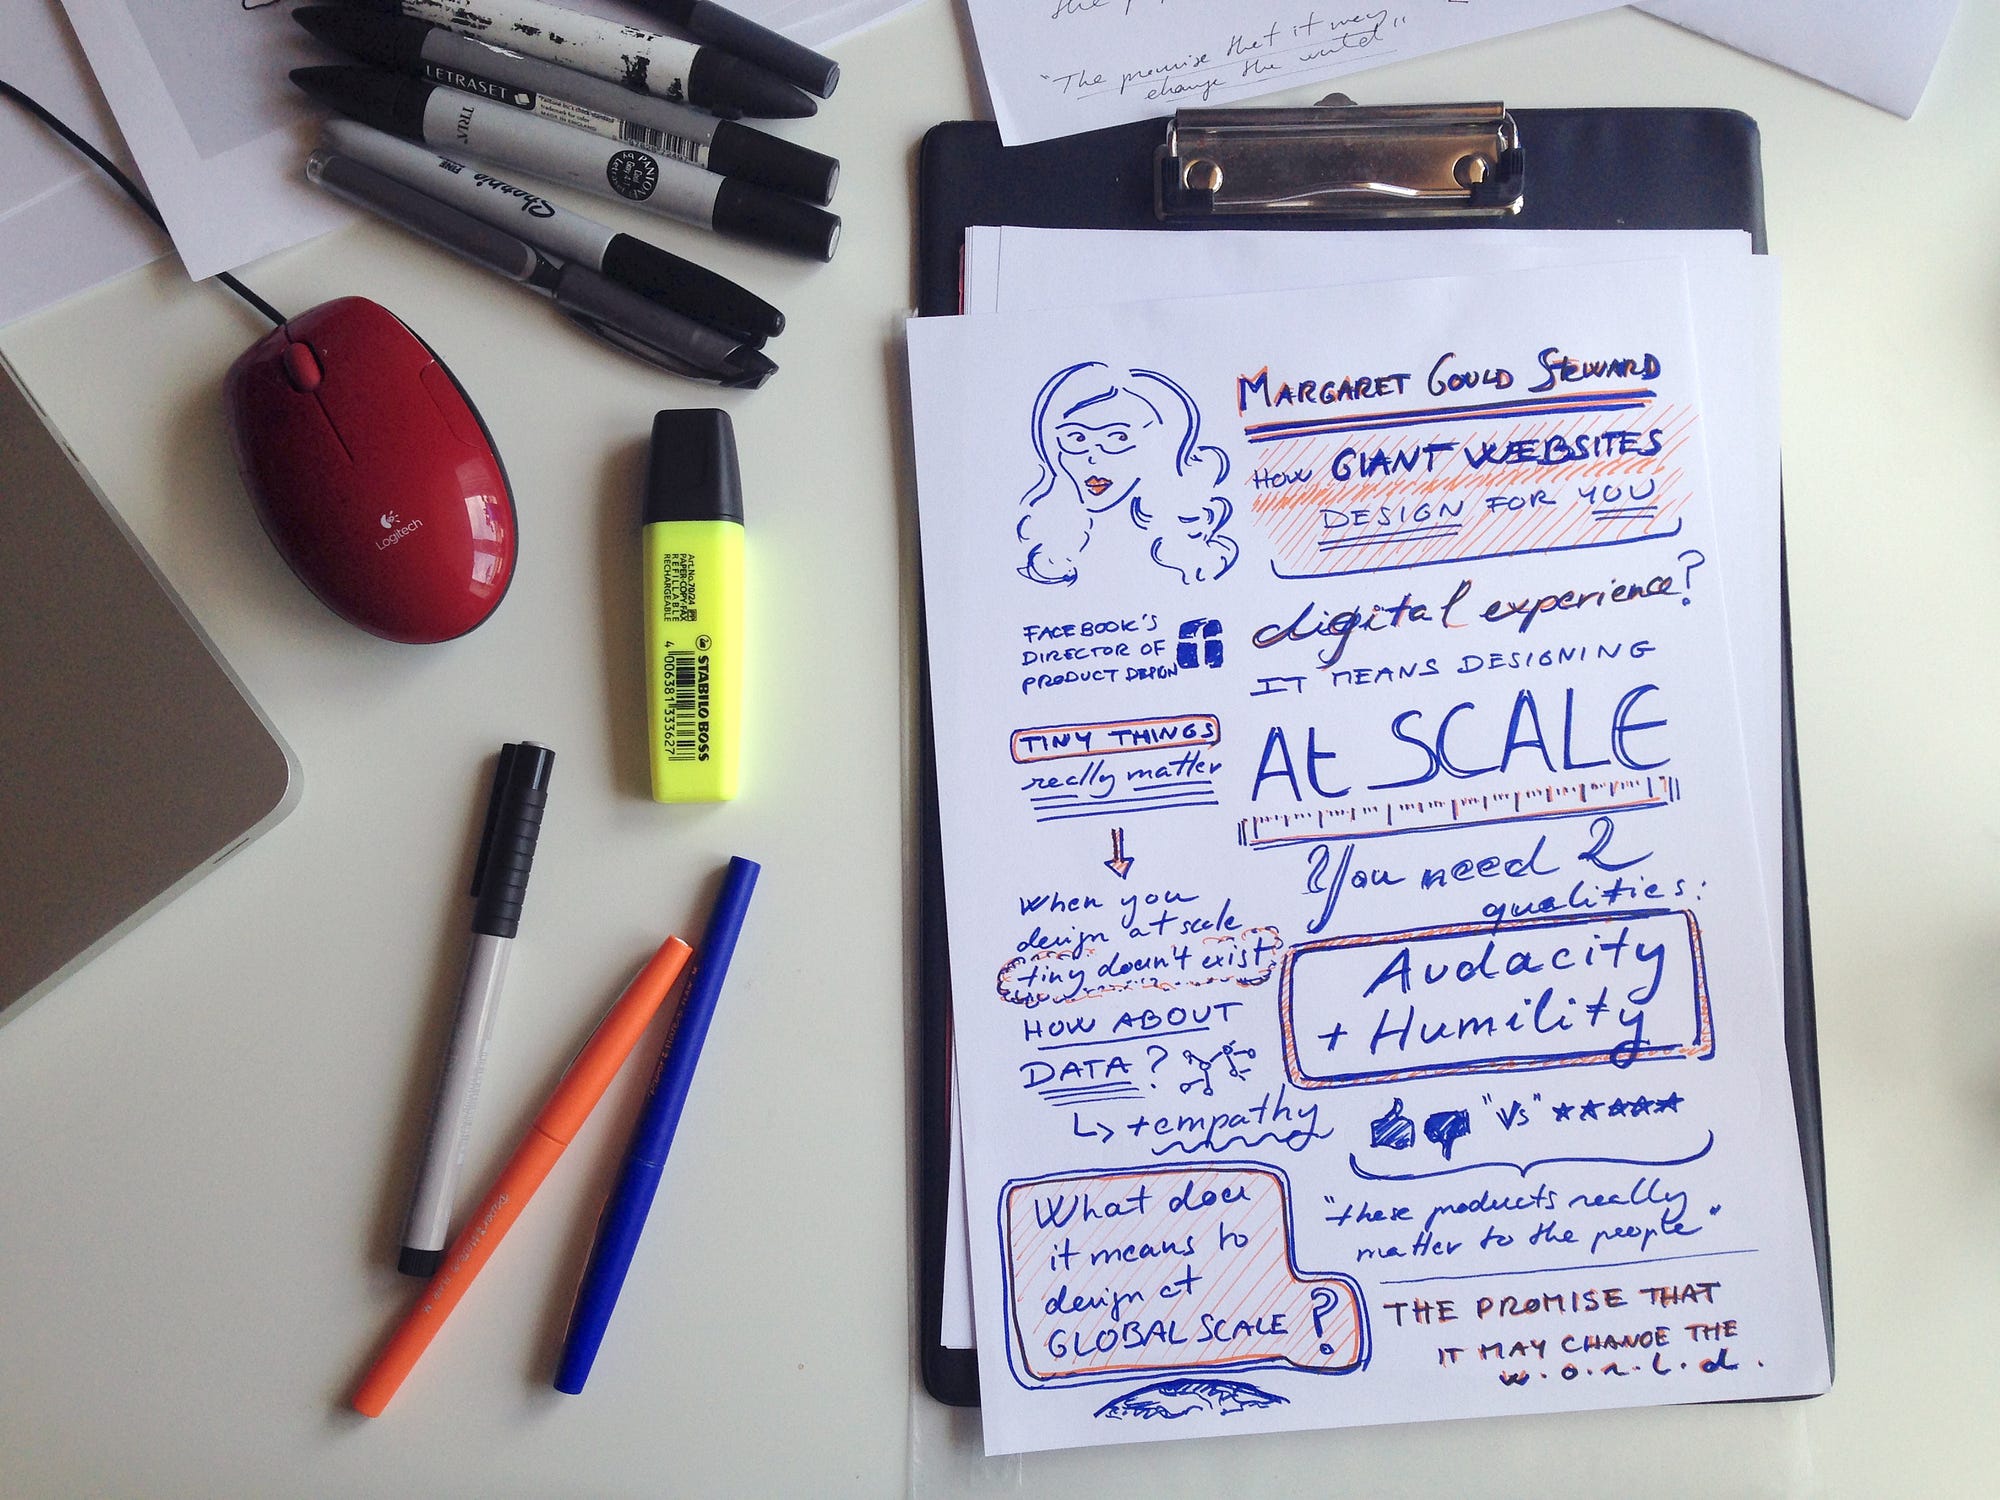 "The promise that it may
change the world"
LETRASET
MADE IN ENGLAND
TRIA
PANTONE
Sharpie
FINE
Logitech
Art.No.70/24
PAPER-COPY-FAX
REFILLABLE
RECHARGEABLE
STABILO BOSS
4 006381 333627
MARGARET GOULD STEWARD
HOW GIANT WEBSITES
DESIGN FOR YOU
digital experience?
IT MEANS DESIGNING
At SCALE
You need 2
qualities:
Audacity
+ Humility
"Vs" *****
"these products really
matter to the people"
THE PROMISE THAT
IT MAY CHANGE THE
w.o.r.l.d.
FACEBOOK'S
DIRECTOR OF
PRODUCT DESIGN
TINY THINGS
really matter
When you
design at scale
tiny doesn't exist
HOW ABOUT
DATA?
+empathy
What does
it means to
design at
GLOBAL SCALE?